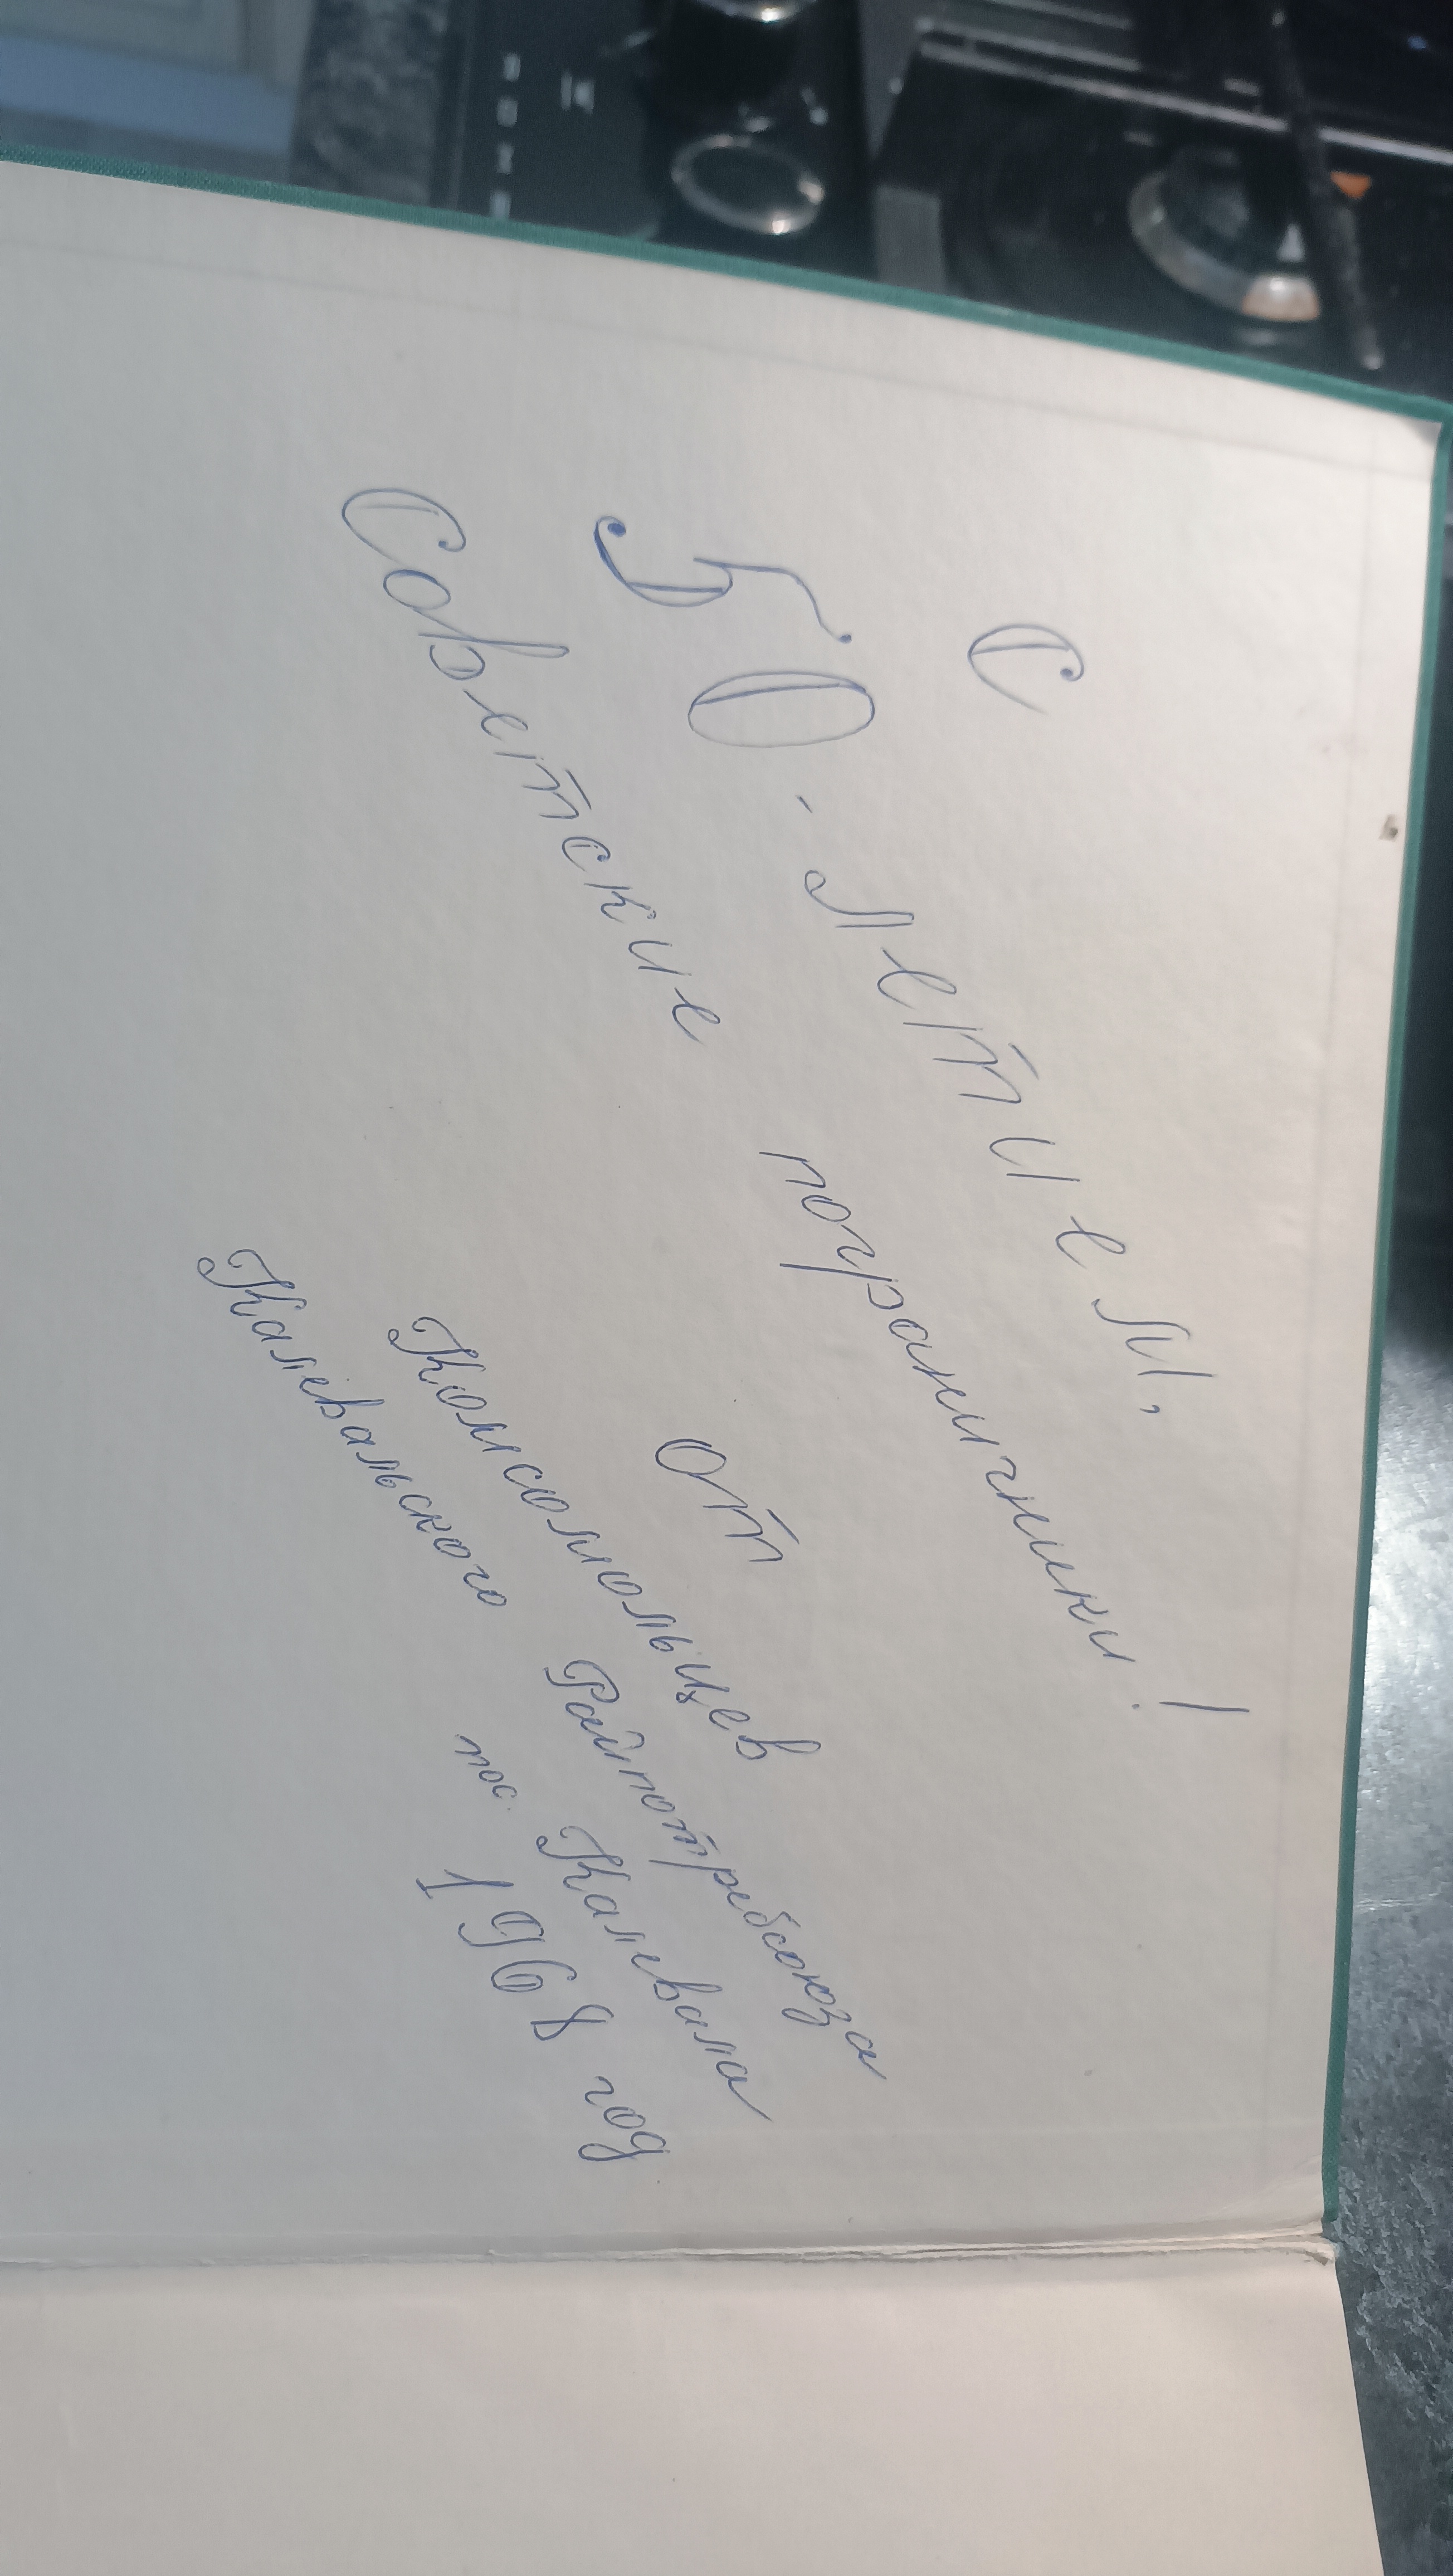 С
50-летием,
Советские пограничники!
от
Комсомольцев
Калевальского Райпотребсоюза
пос. Калевала
1968 год